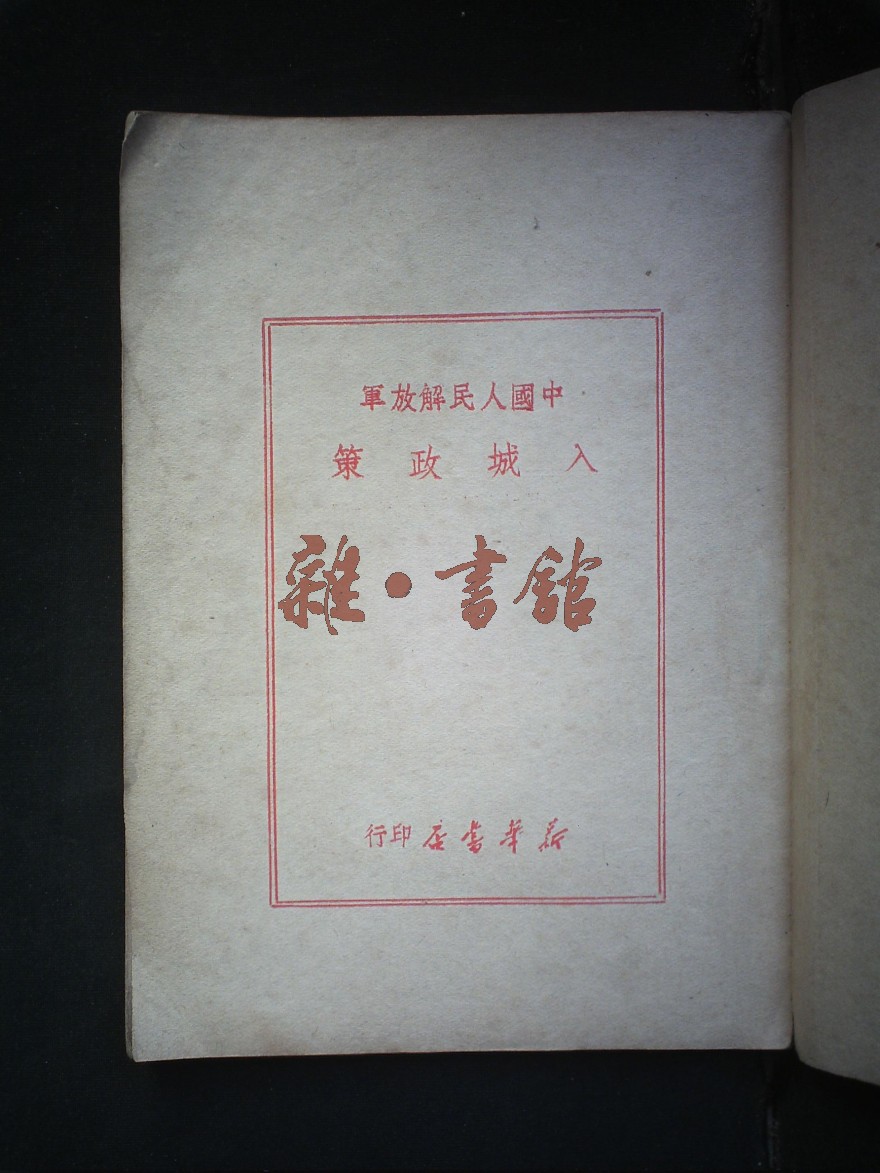 中國人民解放軍
入城政策
雜·書館
新華書店印行